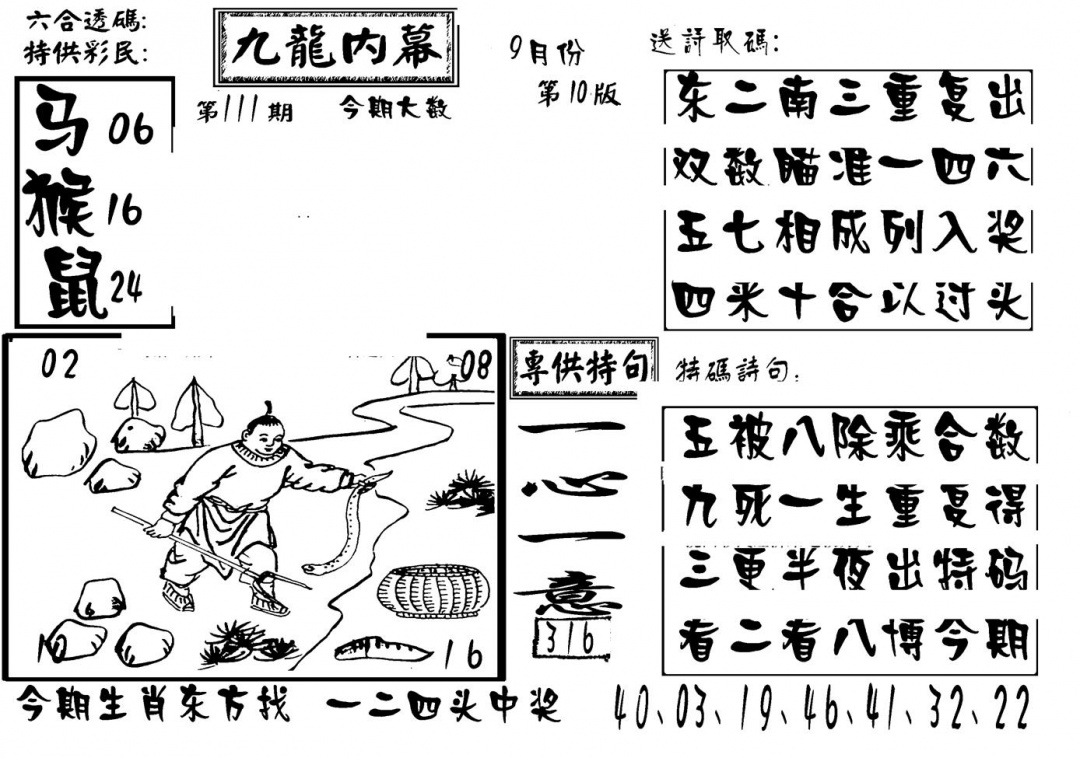 六合透碼:
特供彩民:
九龍内幕
9月份
第10版
第111期
今期大数
马 06
猴 16
鼠 24
送詩取碼:
东二南三重复出
双数瞄准一四六
五七相成列入奖
四米十合以过头
02
08
10
6
16
專供特句
一心一意
316
特碼詩句:
五被八除乘合数
九死一生重复得
三更半夜出特码
看二看八博今期
今期生肖东方找 一二四头中奖 40、03、19、46、41、32、22